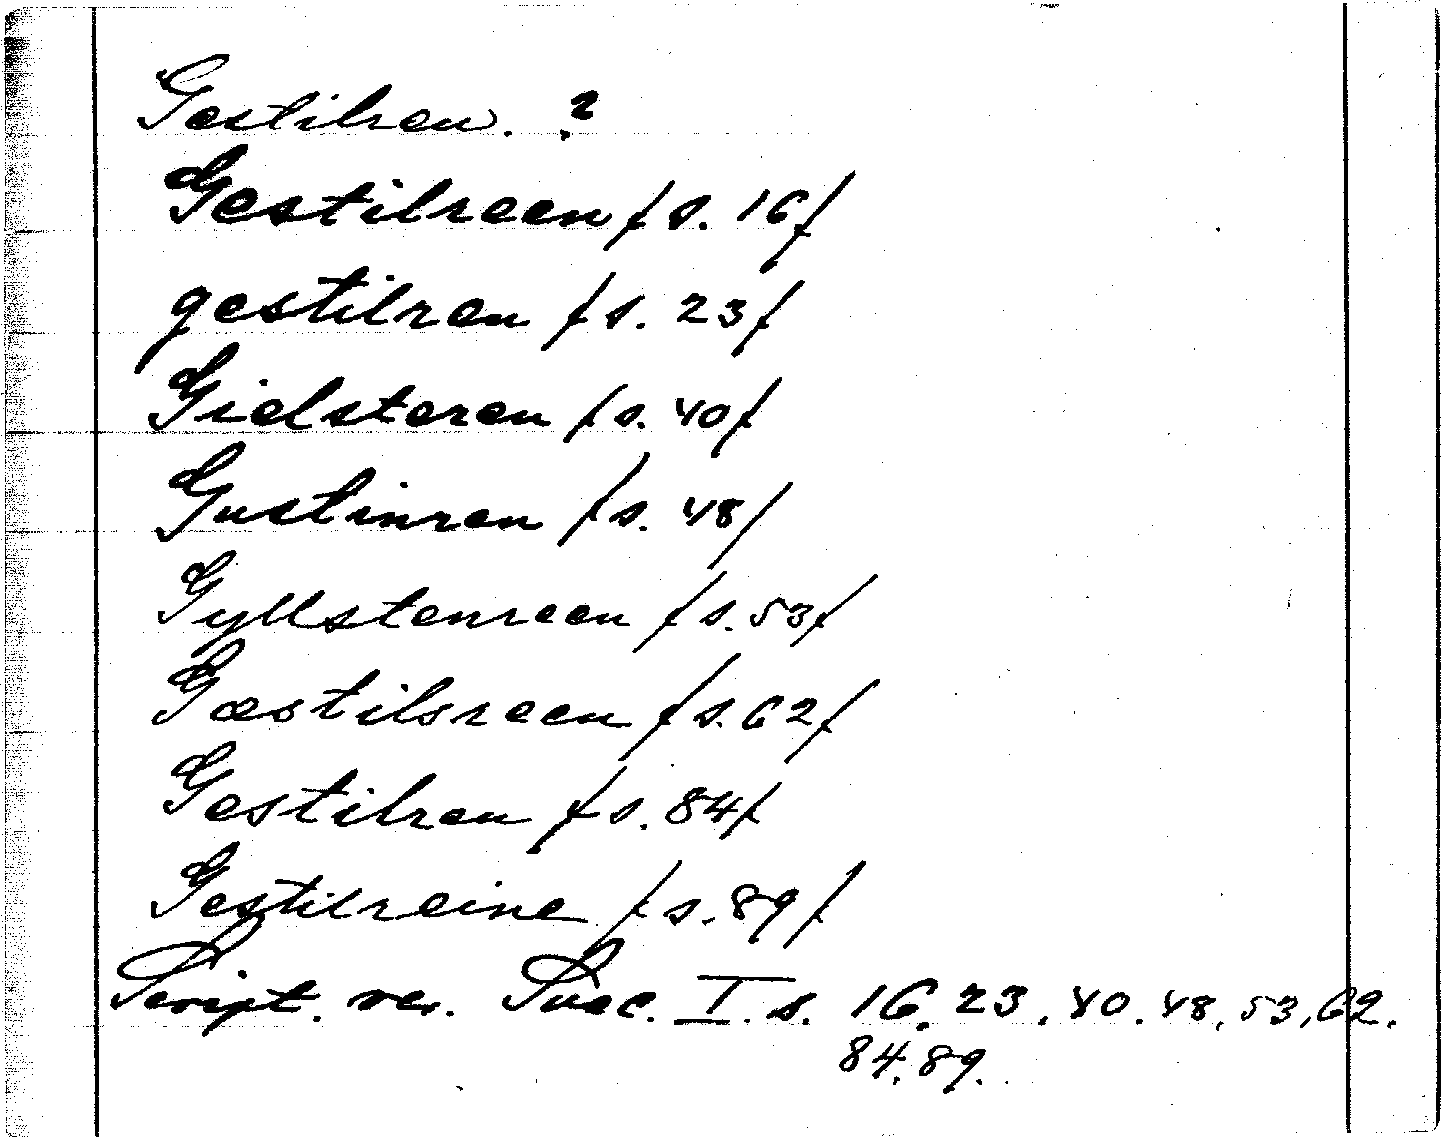 Gestilren. ?
Gestilreen /s. 16/
gestilren /s. 23/
Gielsteren /s. 40/
Gustinren /s. 48/
Gyllstenreen /s. 53/
Gæstilsreen /s. 62/
Gestilren /s. 84/
Gestilreine /s. 89/
Script. rer. Suec. I. s. 16. 23. 40. 48, 53, 62.
84. 89.